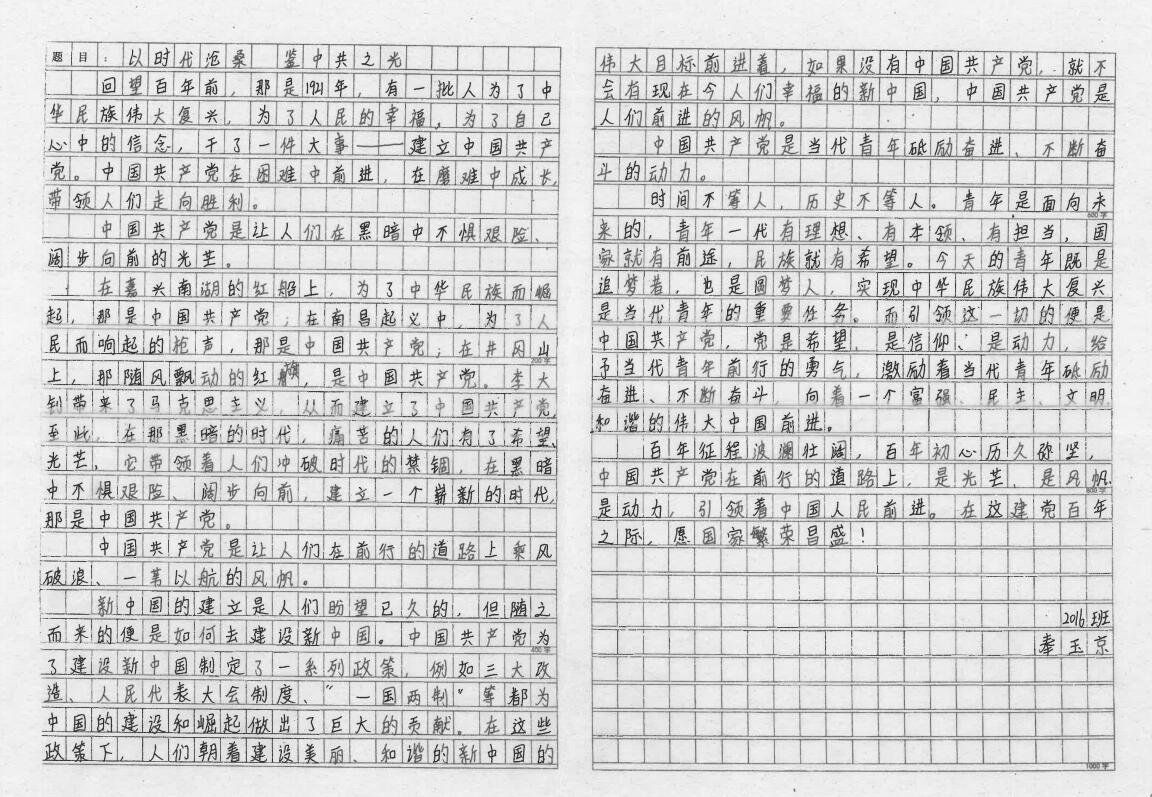 题目：以时代沧桑 鉴中共之光
回望百年前，那是1921年，有一批人为了中
华民族伟大复兴，为了人民的幸福，为了自己
心中的信念，干了一件大事——建立中国共产
党。中国共产党在困难中前进，在磨难中成长，
带领人们走向胜利。
中国共产党是让人们在黑暗中不惧艰险、
阔步向前的光芒。
在嘉兴南湖的红船上，为了中华民族而崛
起，那是中国共产党；在南昌起义中，为了人
民而响起的枪声，那是中国共产党；在井冈山
200字
上，那随风飘动的红旗，是中国共产党。李大
钊带来了马克思主义，从而建立了中国共产党，
至此，在那黑暗的时代，痛苦的人们有了希望、
光芒，它带领着人们冲破时代的禁锢，在黑暗
中不惧艰险、阔步向前，建立一个崭新的时代，
那是中国共产党。
中国共产党是让人们在前行的道路上乘风
破浪、一苇以航的风帆。
新中国的建立是人们盼望已久的，但随之
而来的便是如何去建设新中国。中国共产党为
400字
了建设新中国制定了一系列政策，例如三大改
造、人民代表大会制度、“一国两制”等都为
中国的建设和崛起做出了巨大的贡献。在这些
政策下，人们朝着建设美丽、和谐的新中国的
伟大目标前进着，如果没有中国共产党，就不
会有现在今人们幸福的新中国，中国共产党是
人们前进的风帆。
中国共产党是当代青年砥励奋进、不断奋
斗的动力。
时间不等人，历史不等人。青年是面向未
600字
来的，青年一代有理想、有本领、有担当，国
家就有前途，民族就有希望。今天的青年既是
追梦者，也是圆梦人，实现中华民族伟大复兴
是当代青年的重要任务。而引领这一切的便是
中国共产党，党是希望、是信仰、是动力，给
予当代青年前行的勇气，激励着当代青年砥励
奋进、不断奋斗，向着一个富强、民主、文明、
和谐的伟大中国前进。
百年征程波澜壮阔，百年初心历久弥坚，
中国共产党在前行的道路上，是光芒、是风帆、
800字
是动力，引领着中国人民前进。在这建党百年
之际，愿国家繁荣昌盛！
2016班
奉玉京
1000字